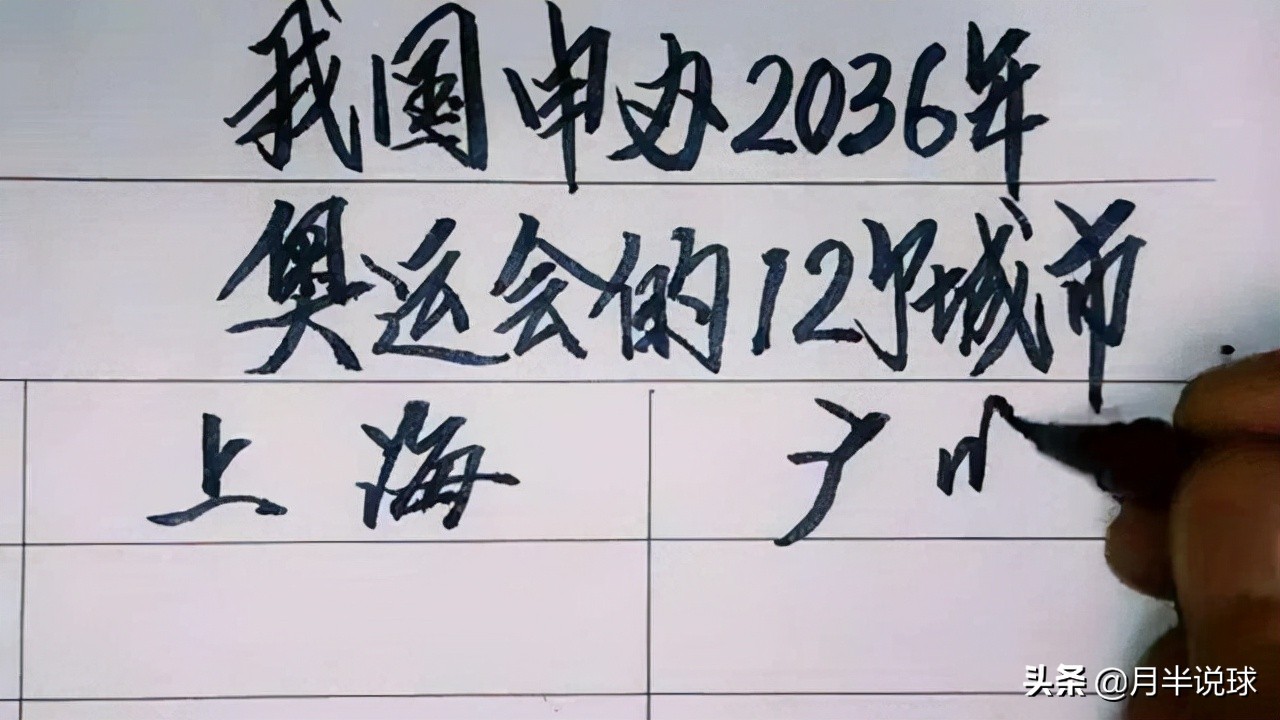 我国申办2036年
奥运会的12个城市
上海 广
头条 @月半说球